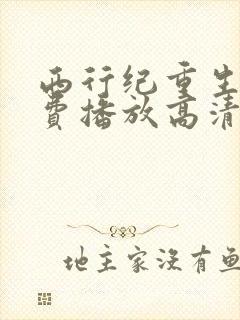 西行纪重生
费播放高清
地主家没有鱼